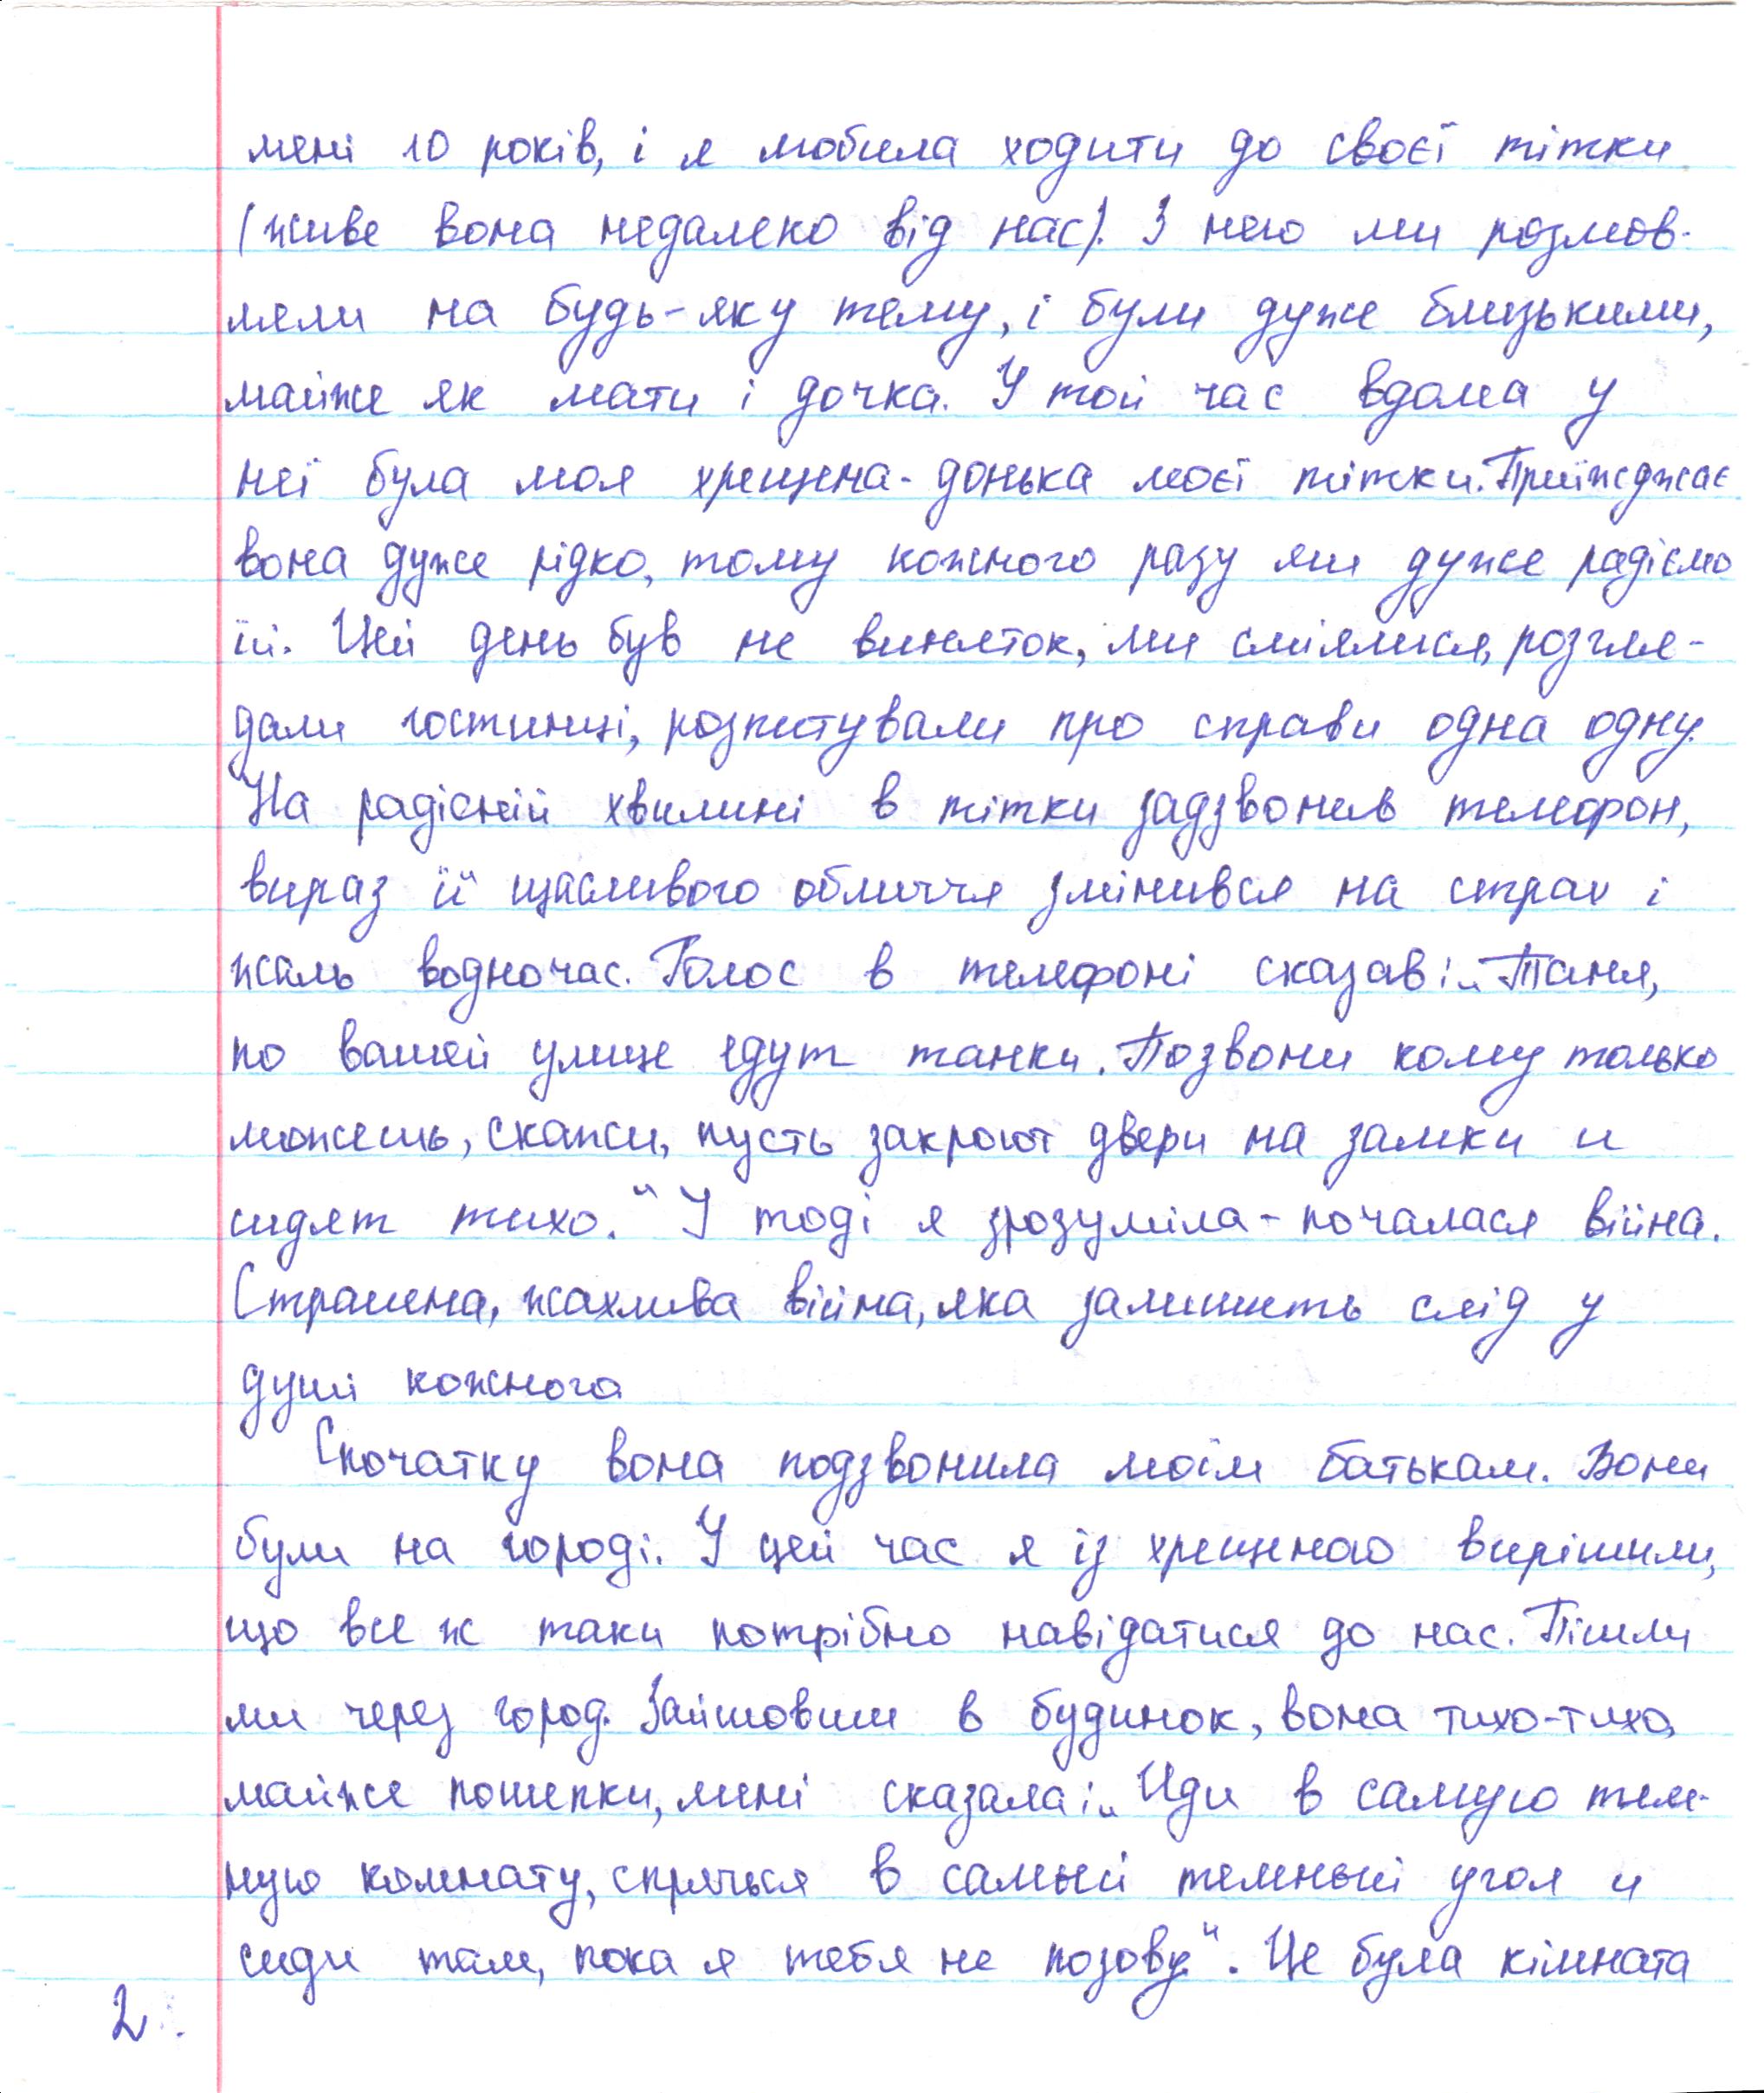 мені 10 років, і я любила ходити до своєї тітки
(живе вона недалеко від нас). З нею ми розмов-
ляли на будь-яку тему, і були дуже близькими,
майже як мати і дочка. У той час вдома у
неї була моя хрещена- донька моєї тітки. Приїжджає
вона дуже рідко, тому кожного разу ми дуже радіємо
їй. Цей день був не виняток, ми сміялися, розгля-
дали гостинці, розпитували про справи одна одну.
На радісній хвилині в тітки задзвонив телефон,
вираз її щасливого обличчя змінився на страх і
жаль водночас. Голос в телефоні сказав: „Таня,
по вашей улице едут танки. Позвони кому только
можешь, скажи, пусть закроют двери на замки и
сидят тихо." І тоді я зрозуміла - почалася війна.
Страшна, жахлива війна, яка залишить слід у
душі кожного
Спочатку вона подзвонила моїм батькам. Вони
були на городі. У цей час я із хрещеною вирішили,
що все ж таки потрібно навідатися до нас. Пішли
ми через город. Зайшовши в будинок, вона тихо-тихо,
майже пошепки, мені сказала: „Иди в самую тем-
ную комнату, спрячься в самый темный угол и
сиди там, пока я тебя не позову". Це була кімната
2